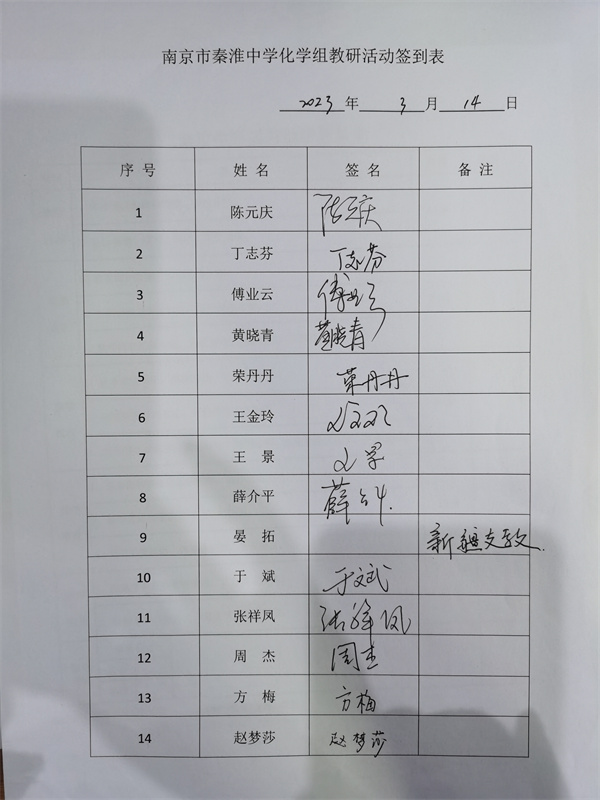 南京市秦淮中学化学组教研活动签到表
2023 年 3 月 14 日
序 号 姓 名 签 名 备 注
1 陈元庆 陈元庆
2 丁志芬 丁志芬
3 傅业云 傅业云
4 黄晓青 黄晓青
5 荣丹丹 荣丹丹
6 王金玲
7 王 景 王景
8 薛介平 薛介平
9 晏 拓 新疆支教.
10 于 斌 于斌
11 张祥凤 张祥凤
12 周 杰 周杰
13 方 梅 方梅
14 赵梦莎 赵梦莎